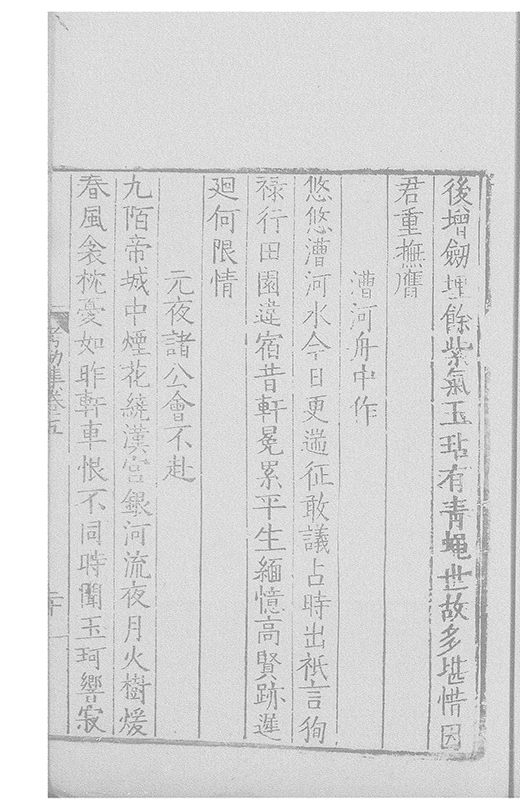 後增劒埋餘紫氣玉玷有青蠅世故多堪惜因
君重撫膺
漕河舟中作
悠悠漕河水今日更遄征敢議占時出祇言徇
祿行田園違宿昔軒冕累平生緬憶高賢跡遲
廻何限情
元夜諸公會不赴
九陌帝城中煙花繞漢宮銀河流夜月火樹煖
春風衾枕憂如昨軒車恨不同時聞玉珂響寂
集卷五